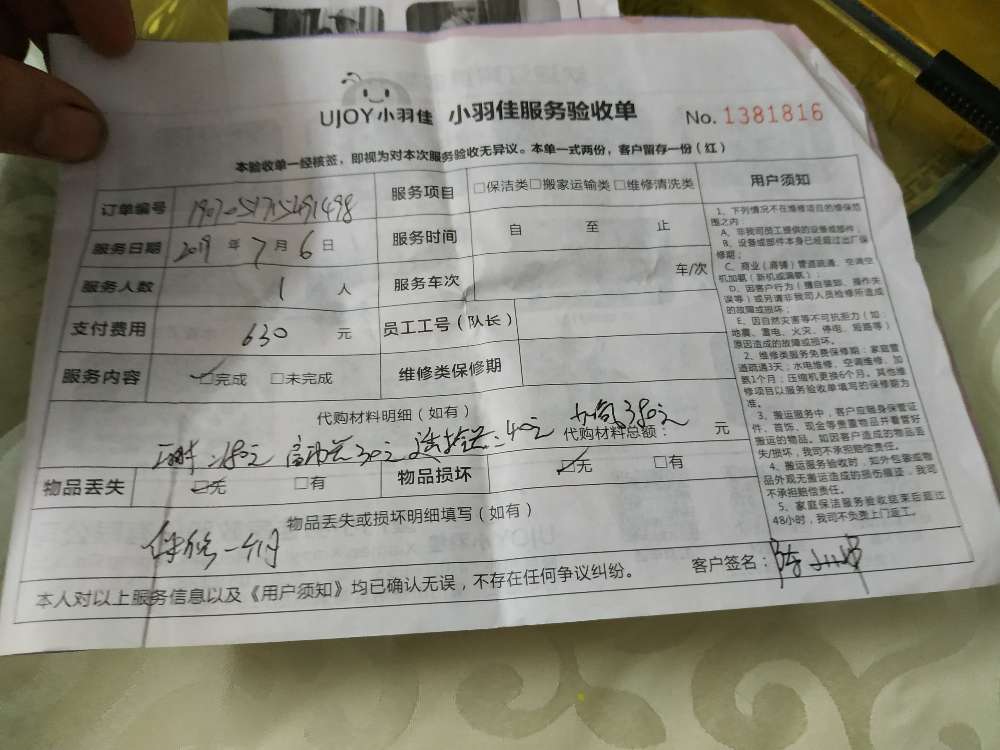 UJOY小羽佳 小羽佳服务验收单 No. 1381816
本验收单一经核签，即视为对本次服务验收无异议。本单一式两份，客户留存一份（红）
订单编号 服务项目 □保洁类□搬家运输类□维修清洗类
服务日期 2019年7月6日 服务时间 自 至 止
服务人数 1人 服务车次 车/次
支付费用 630元 员工工号（队长）
服务内容 ☑完成 □未完成 维修类保修期
代购材料明细（如有）
180元 高功芯30元 40元 加氟380元 代购材料总额： 元
物品丢失 ☑无 □有 物品损坏 ☑无 □有
物品丢失或损坏明细填写（如有）
保修一个月
本人对以上服务信息以及《用户须知》均已确认无误，不存在任何争议纠纷。 客户签名：陈
用户须知
1、下列情况不在维修项目的维保范
围之内：
A、非我司员工提供的设备或部件
B、设备或部件本身已经超过出厂保
修期；
C、商业（商铺）管道疏通、空调空
机加氨（新机或漏氨）；
D、因客户行为（擅自装卸、操作失
误等）或另请非我司人员检修所造成
的故障或损坏；
E、因自然灾害等不可抗拒力（如：
地震、雷电、火灾、停电、短路等）
原因造成的故障或损坏。
2、维修类服务免费保修期：家庭管
道疏通3天；水电维修、空调维修、加
氨1个月；压缩机更换6个月。其他维
修项目以服务验收单填写的保修期为
准。
3、搬运服务中，客户应随身保管证
件、首饰、现金等贵重物品并看管好
搬运的物品。如因客户造成的物品丢
失/损坏，我司不承担赔偿责任。
4、搬运服务验收时，如外包装或物
品外观无搬运造成的损伤痕迹，我司
不承担赔偿责任。
5、家庭保洁服务验收结束后超过
48小时，我司不负责上门返工。